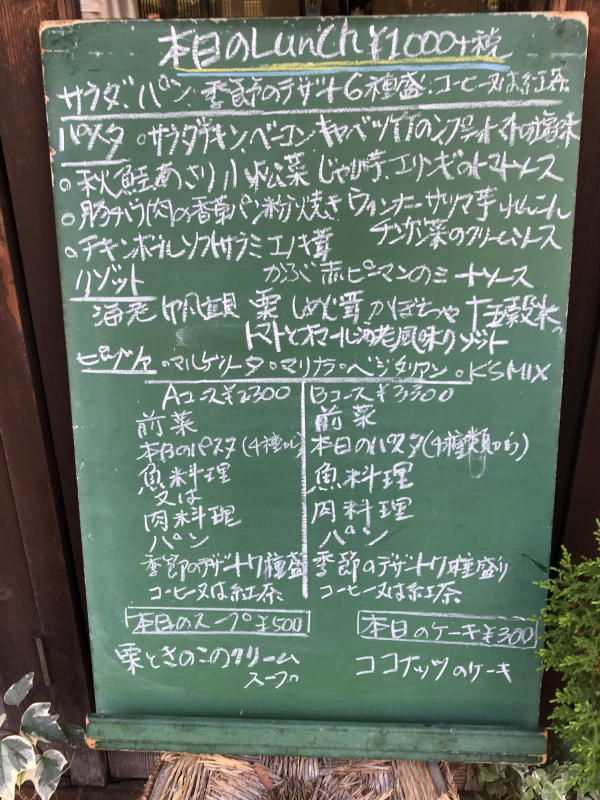 本日のLunch ¥1000+税
サラダ、パン、季節のデザート6種盛、コーヒー又は紅茶
パスタ 。サラダチキン、ベーコン、キャベツ
。秋鮭 あさり 小松菜 じゃが芋、エリンギのトマトソース
。豚バラ肉の香草パン粉焼き ウィンナー サツマ芋
チンゲン菜のクリームソース
。チキンボール ソフトサラミ エノキ茸
かぶ 赤ピーマンのミートソース
リゾット
海老 帆立貝 栗 しめじ茸 かぼちゃ 十五穀米の
トマトとオマール海老風味リゾット
ピッツァ 。マルゲリータ 。マリナラ 。ベジタリアン 。K'S MIX
Aコース¥2300
前菜
本日のパスタ(4種から)
魚料理
又は
肉料理
パン
季節のデザート7種盛
コーヒー又は紅茶
Bコース¥3300
前菜
本日のパスタ(4種類から)
魚料理
肉料理
パン
季節のデザート7種盛り
コーヒー又は紅茶
本日のスープ¥500
栗ときのこのクリーム
スープ
本日のケーキ¥300
ココナッツのケーキ